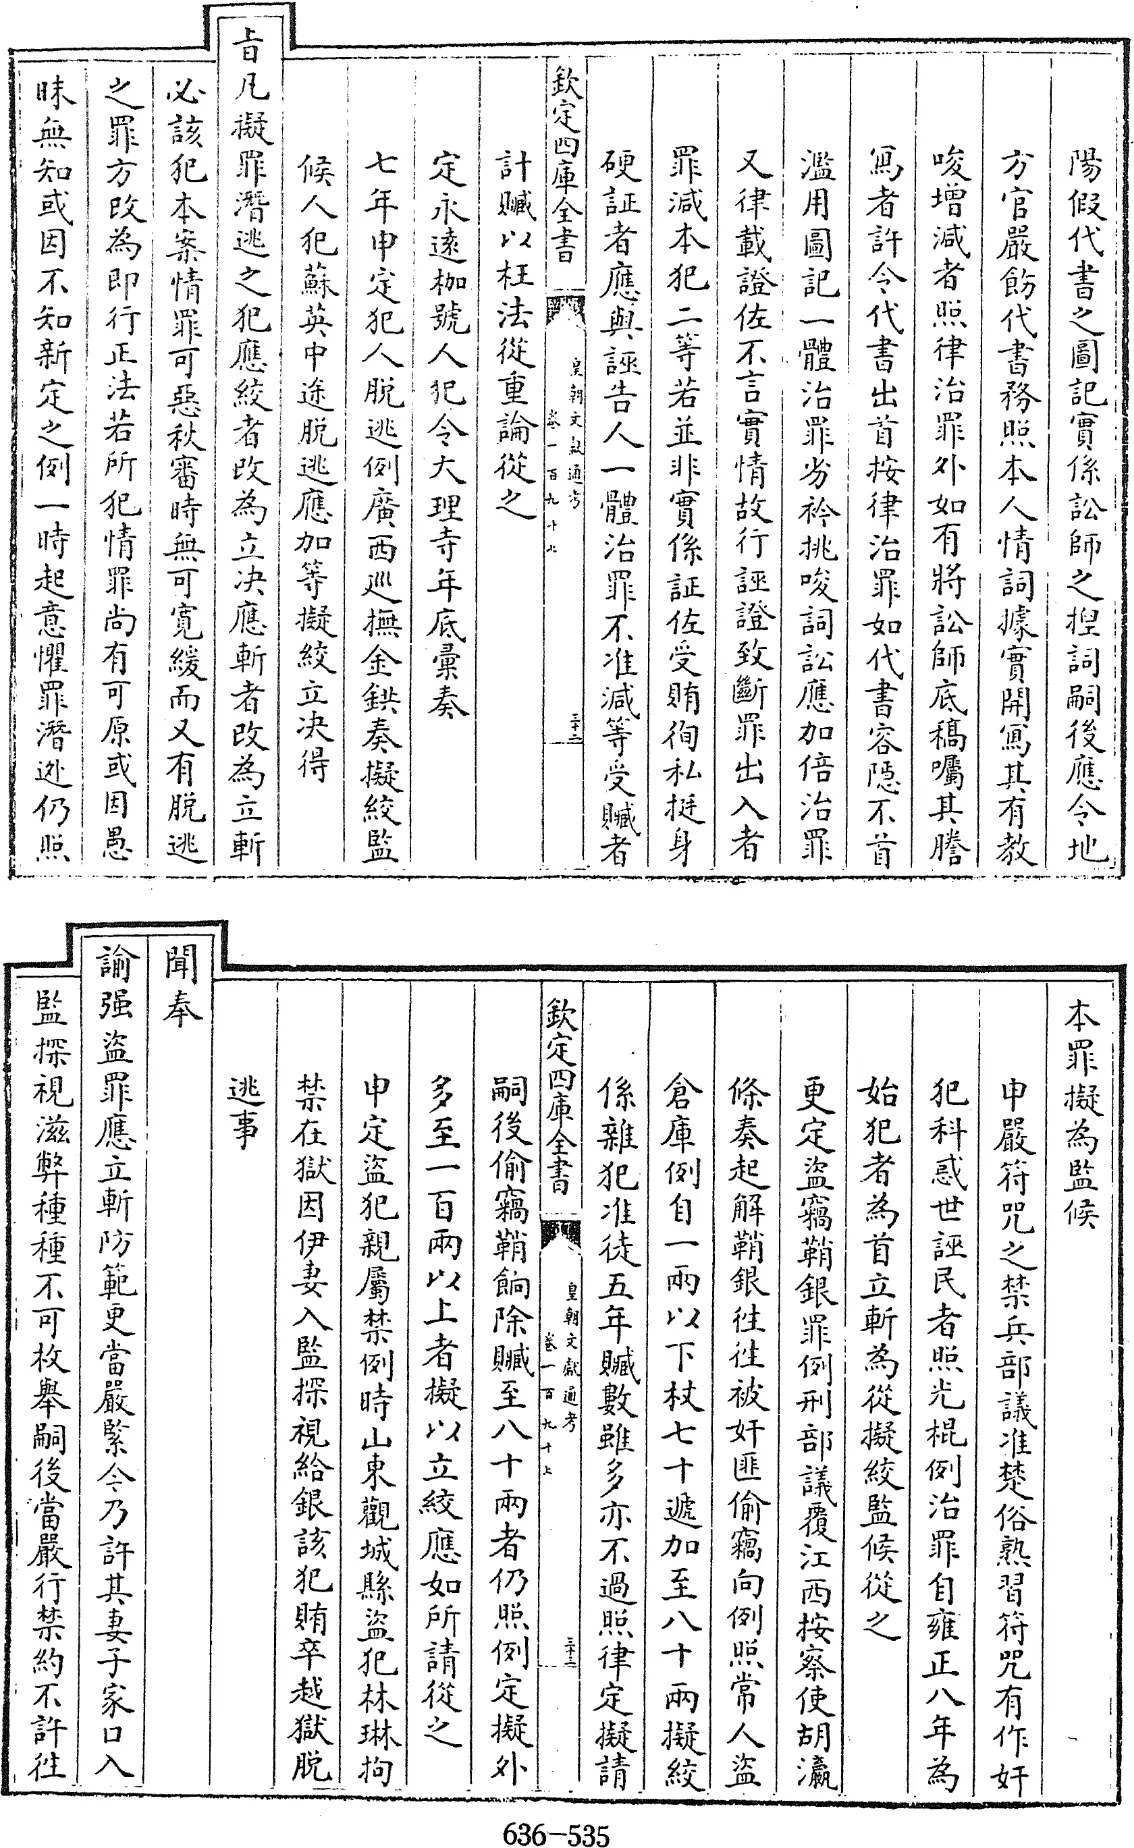 陽假代書之圖記實係訟師之揑詞嗣後應令地
方官嚴飭代書務照本人情詞據實開寫其有教
唆增減者照律治罪外如有將訟師底稿囑其謄
寫者許令代書出首按律治罪如代書容隱不首
濫用圖記一體治罪劣衿挑唆詞訟應加倍治罪
又律載證佐不言實情故行誣證致斷罪出入者
罪減本犯二等若並非實係証佐受賄徇私挺身
硬証者應與誣告人一體治罪不准減等受贓者
欽定四庫全書
皇朝文獻通考
卷一百九十七
三十二
計贓以枉法從重論從之
定永遠枷號人犯令大理寺年底彙奏
七年申定犯人脱逃例廣西巡撫金鉷奏擬絞監
候人犯蘇英中途脱逃應加等擬絞立决得
旨凡擬罪潛逃之犯應絞者改為立决應斬者改為立斬
必該犯本案情罪可惡秋審時無可寬緩而又有脱逃
之罪方改為即行正法若所犯情罪尚有可原或因愚
昧無知或因不知新定之例一時起意懼罪潛逃仍照
本罪擬為監候
申嚴符咒之禁兵部議准楚俗熟習符咒有作奸
犯科惑世誣民者照光棍例治罪自雍正八年為
始犯者為首立斬為從擬絞監候從之
更定盜竊鞘銀罪例刑部議覆江西按察使胡瀛
條奏起解鞘銀往往被奸匪偷竊向例照常人盜
倉庫例自一兩以下杖七十遞加至八十兩擬絞
係雜犯准徒五年贓數雖多亦不過照律定擬請
欽定四庫全書
皇朝文獻通考
卷一百九十七
三十三
嗣後偷竊鞘餉除贓至八十兩者仍照例定擬外
多至一百兩以上者擬以立絞應如所請從之
申定盜犯親屬禁例時山東觀城縣盜犯林琳拘
禁在獄因伊妻入監探視給銀該犯賄卒越獄脱
逃事
聞奉
諭强盜罪應立斬防範更當嚴緊今乃許其妻子家口入
監探視滋弊種種不可枚舉嗣後當嚴行禁約不許往
636-535